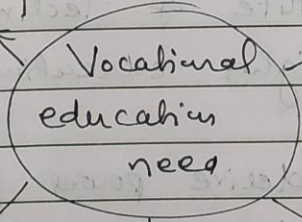 Vocational
education
need